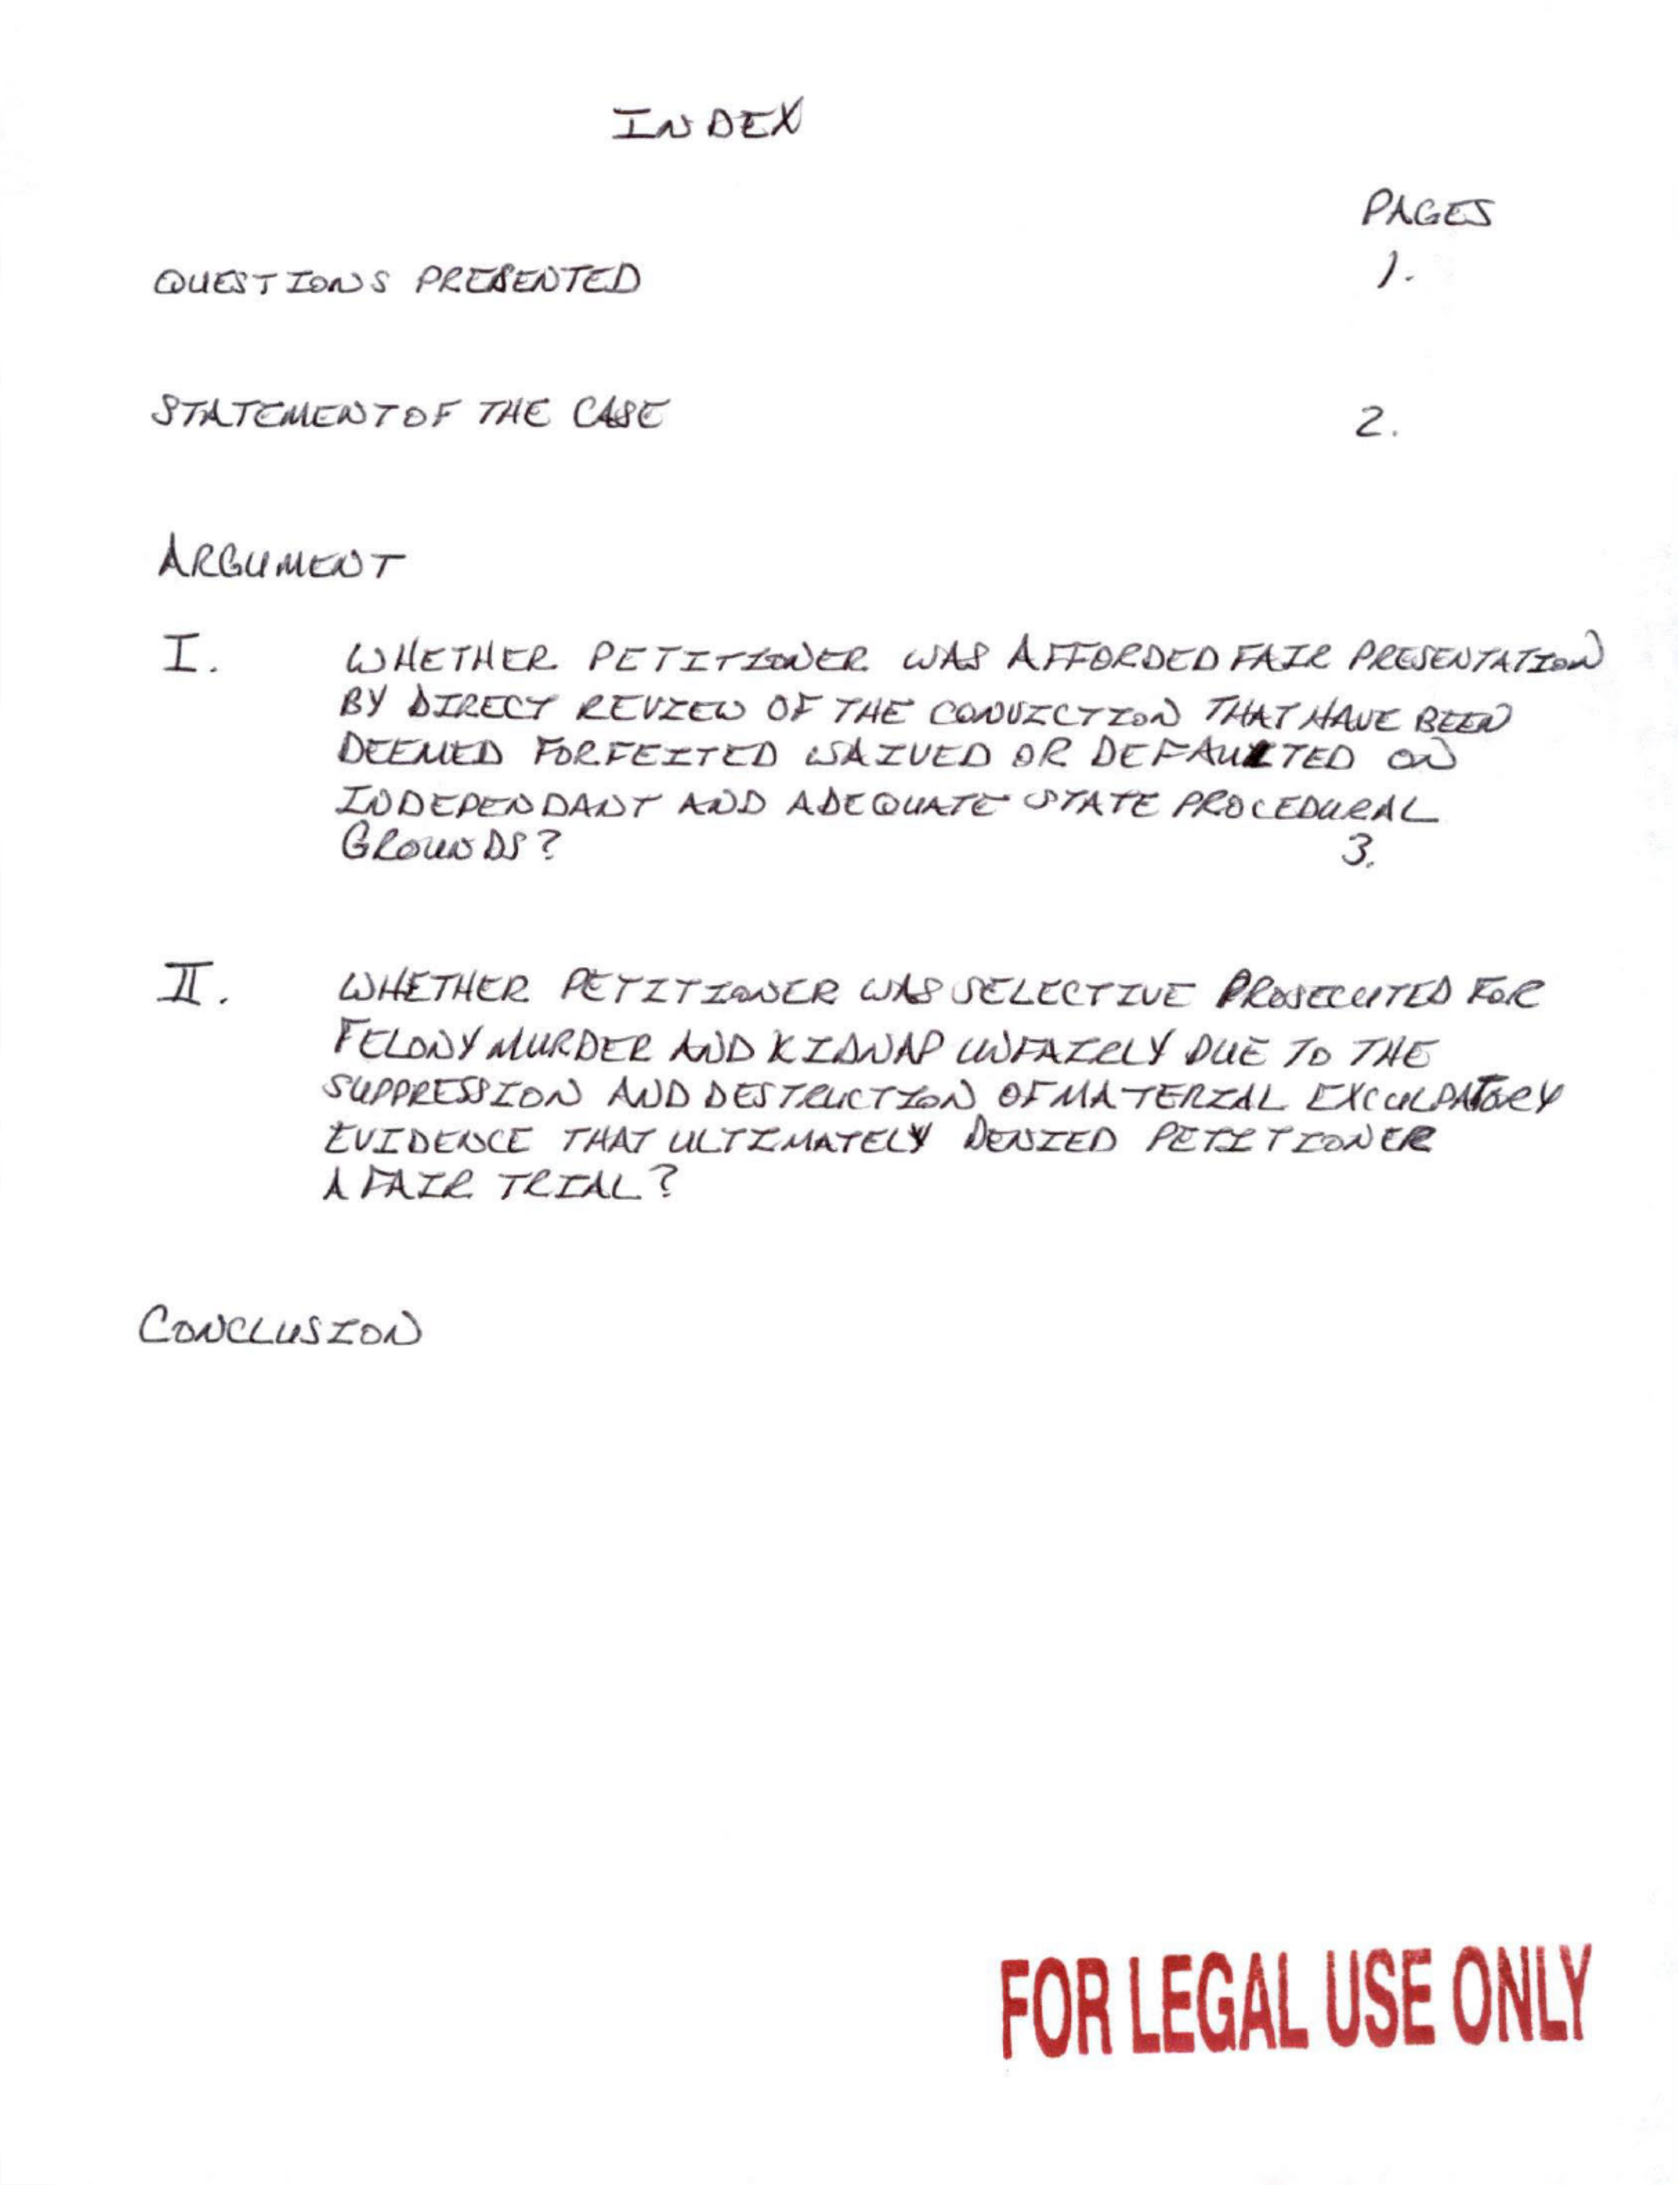 INDEX
PAGES
QUESTIONS PRESENTED 1.
STATEMENT OF THE CASE 2.
ARGUMENT
I. WHETHER PETITIONER WAS AFFORDED FAIR PRESENTATION
BY DIRECT REVIEW OF THE CONVICTION THAT HAVE BEEN
DEEMED FORFEITED WAIVED OR DEFAULTED ON
INDEPENDANT AND ADEQUATE STATE PROCEDURAL
GROUNDS? 3.
II. WHETHER PETITIONER WAS SELECTIVE PROSECUTED FOR
FELONY MURDER AND KIDNAP UNFAIRLY DUE TO THE
SUPPRESSION AND DESTRUCTION OF MATERIAL EXCULPATORY
EVIDENCE THAT ULTIMATELY DENIED PETITIONER
A FAIR TRIAL?
CONCLUSION
FOR LEGAL USE ONLY